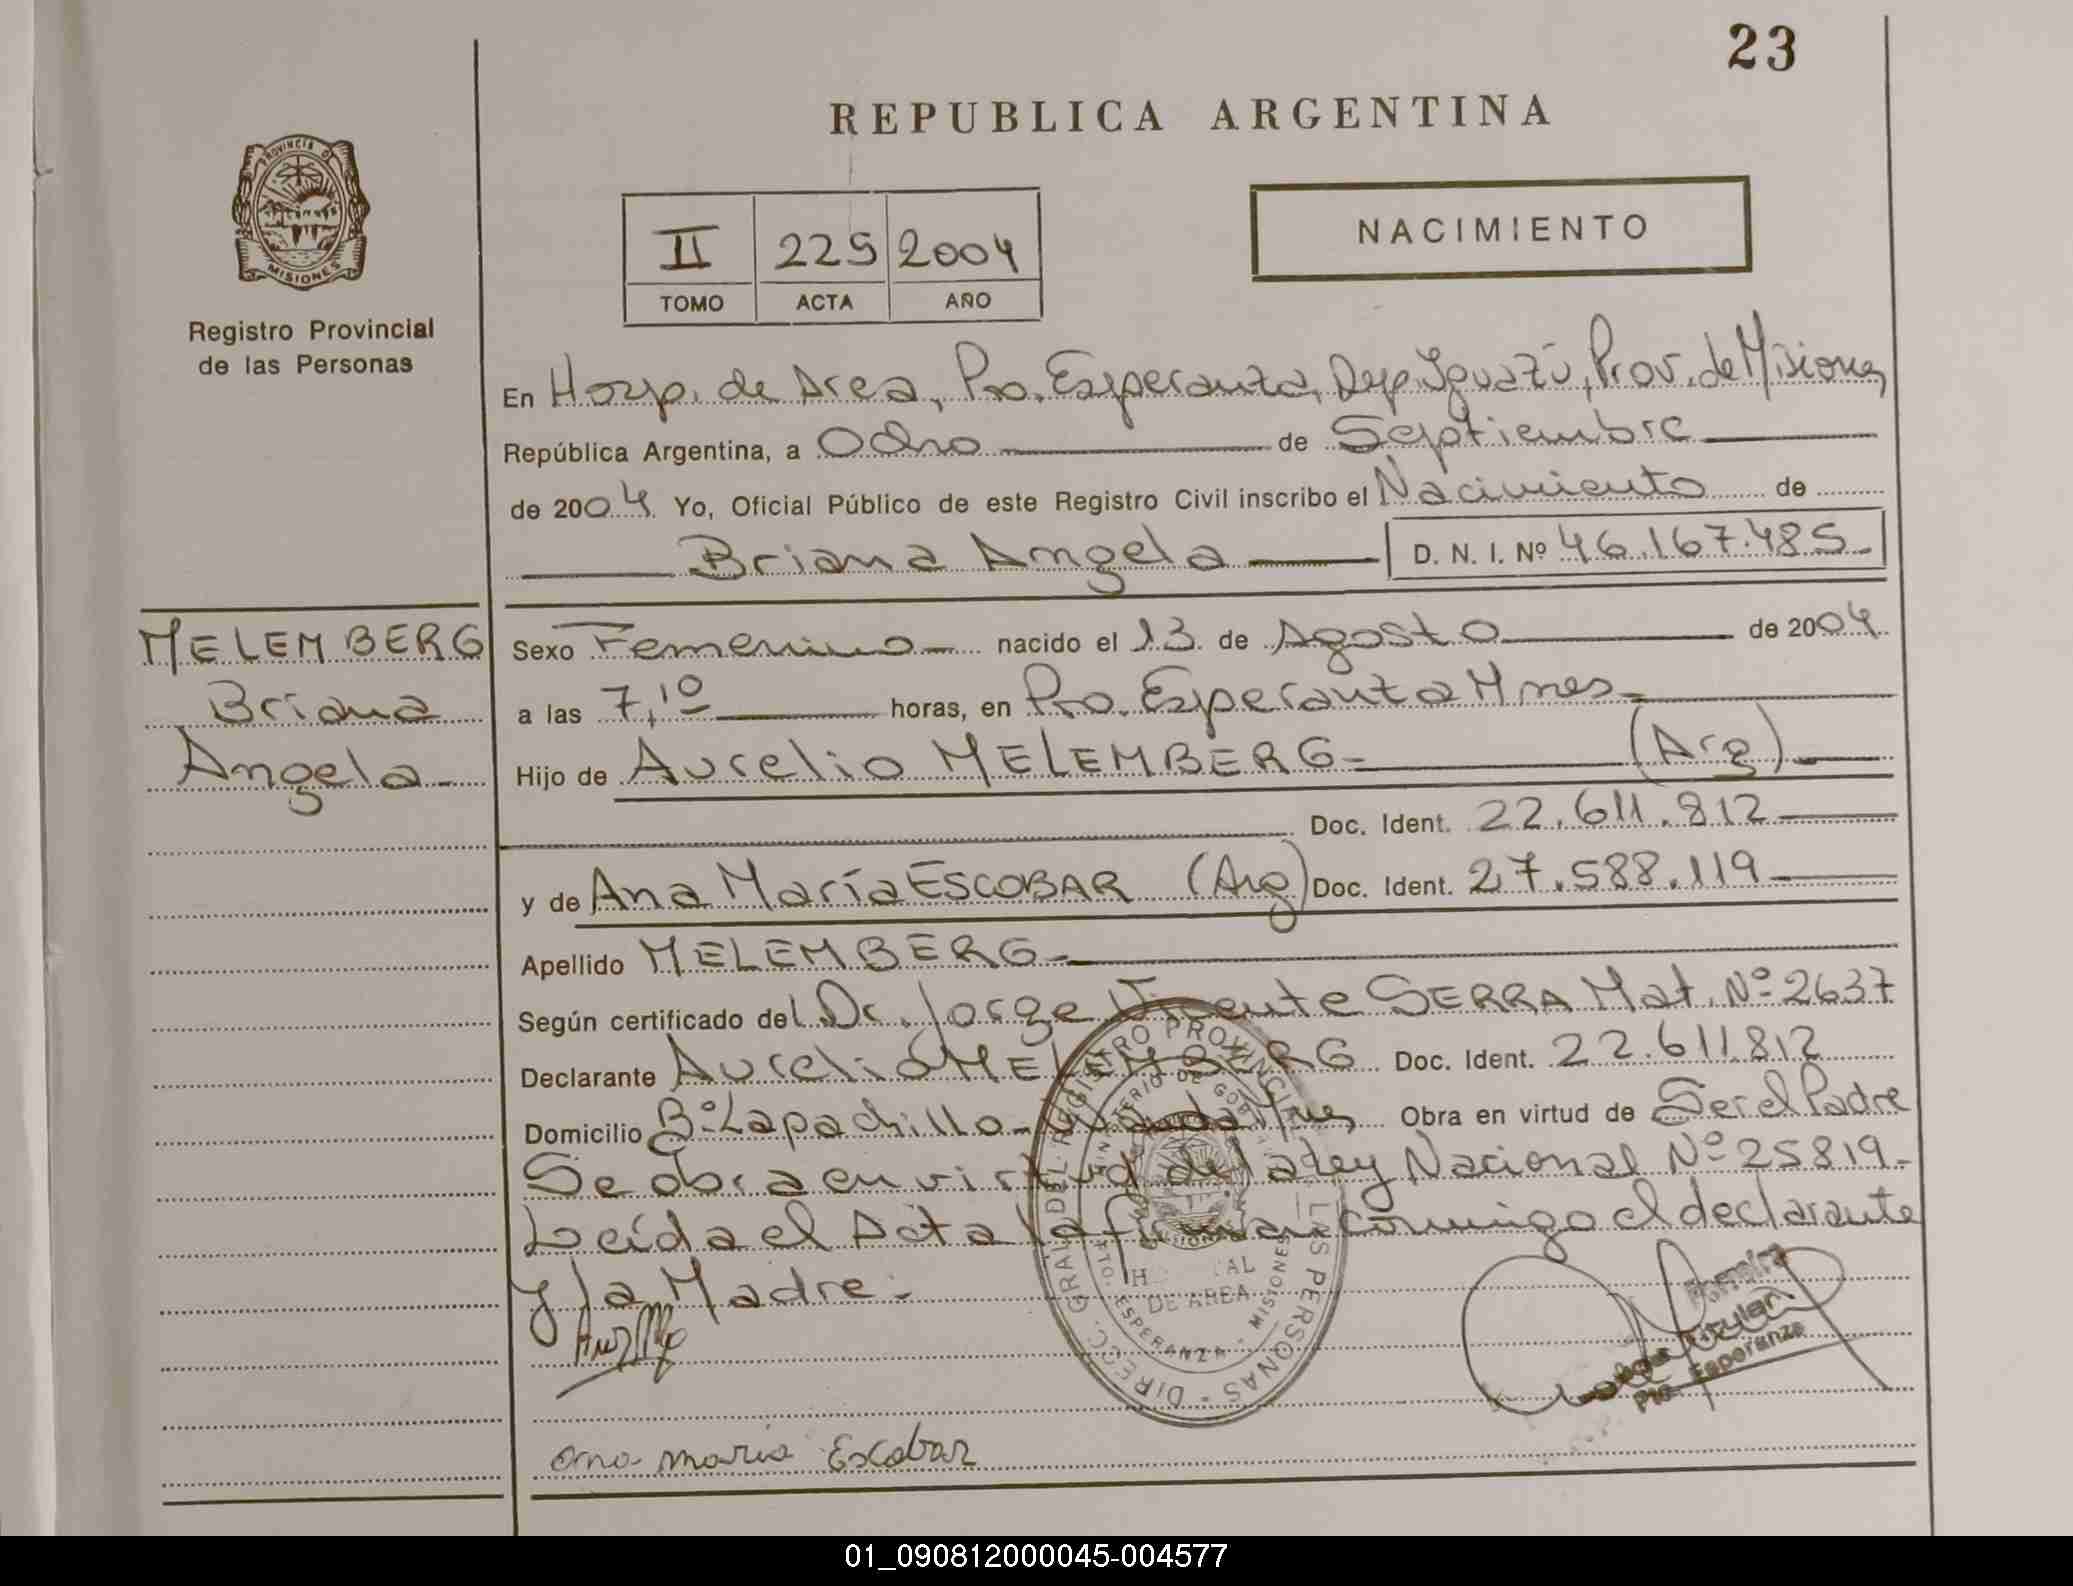 23
REPUBLICA ARGENTINA
PROVINCIA DE
MISIONES
Registro Provincial
de las Personas
II 225 2004
TOMO ACTA AÑO
NACIMIENTO
En Hosp. de Area, Pto. Esperanza, Dep. Iguazú, Prov. de Misiones
República Argentina, a Ocho de Septiembre
de 2004 Yo, Oficial Público de este Registro Civil inscribo el Nacimiento de
Briana Angela D. N. I. Nº 46.167.485
MELEMBERG
Briana
Angela
Sexo Femenino nacido el 13 de Agosto de 2004
a las 7,10 horas, en Pto. Esperanza Mnes
Hijo de Aurelio MELEMBERG (Arg)
Doc. Ident. 22.611.812
y de Ana María ESCOBAR (Arg) Doc. Ident. 27.588.119
Apellido MELEMBERG
Según certificado del Dr. Jorge Vicente SERRA Mat. Nº 2637
Declarante Aurelio MELEMBERG Doc. Ident. 22.611.812
Domicilio Bº Lapachillo - Wanda Mnes Obra en virtud de Ser el Padre
Se obra en virtud de la Ley Nacional Nº 25819-
Leída el Acta la firman conmigo el declarante
y la Madre.
DIRECC. GRAL. DEL REGISTRO PROVINCIAL DE LAS PERSONAS
MINISTERIO DE GOBIERNO
HOSPITAL
DE AREA
PTO. ESPERANZA - MISIONES
Titular
Pto. Esperanza
ana maria Escobar
01_090812000045-004577